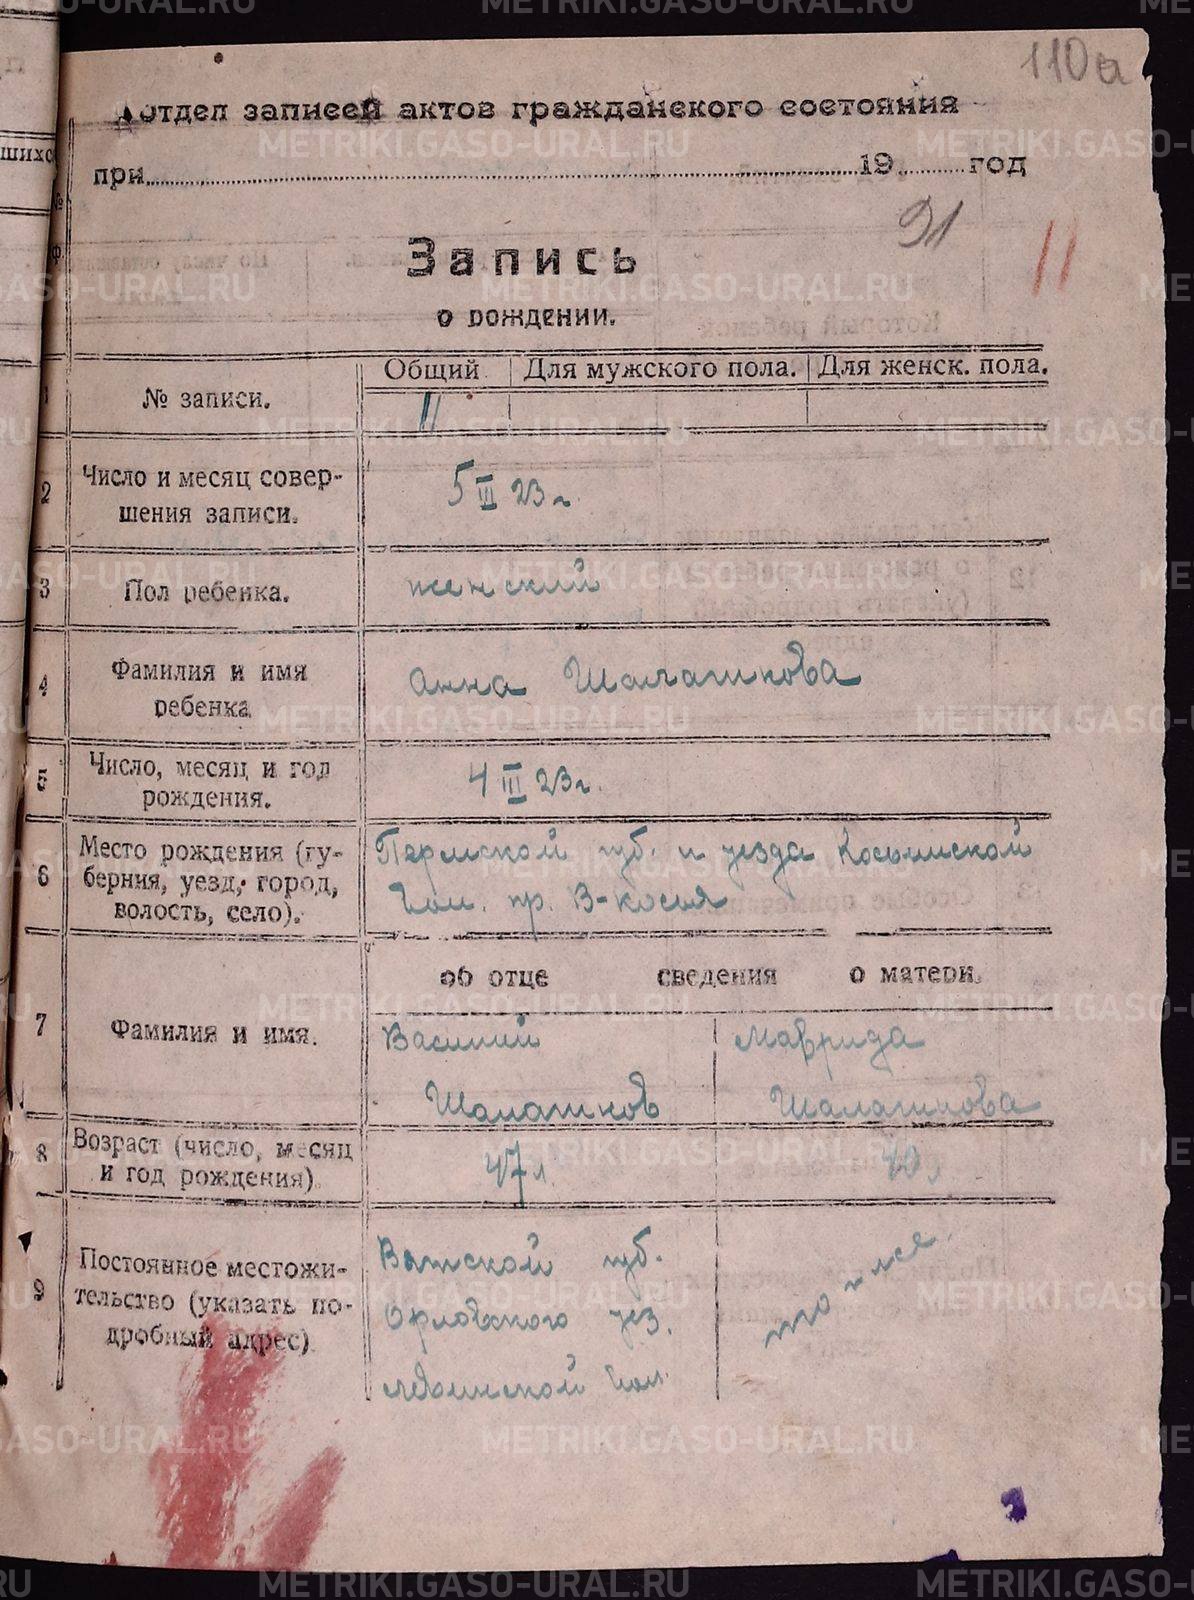 110а
отдел записей актов гражданского состояния
при 19 год
91 11
Запись
о рождении.
Общий Для мужского пола. Для женск. пола.
1 № записи. 11
2 Число и месяц совер-
шения записи.
5 III 23 г.
3 Пол ребенка. женский
4 Фамилия и имя
ребенка
Анна Шалашкова
5 Число, месяц и год
рождения.
4 III 23 г.
6 Место рождения (гу-
берния, уезд, город,
волость, село).
Пермской губ. и уезда Косьинской
вол. пр. В-косья
об отце сведения о матери.
7 Фамилия и имя.
Василий Маврида
Шалашков Шалашкова
8 Возраст (число, месяц
и год рождения)
47 л. 40 л.
9 Постоянное местожи-
тельство (указать по-
дробный адрес)
Вятской губ. то же.
Орловского уез.
вол.
шихс
METRIKI.GASO-URAL.RU